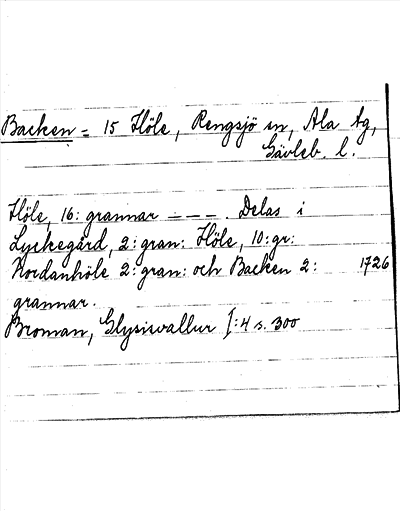 Backen = 15 Höle, Rengsjö sn, Ala tg,
Gävleb. l.
Höle, 16: grannar — — — . Delas i
Lyckegård, 2: gran: Höle, 10: gr:
Nordanhöle 2: gran: och Backen 2: 1726
grannar.
Broman, Glysisvallur I:4 s. 300